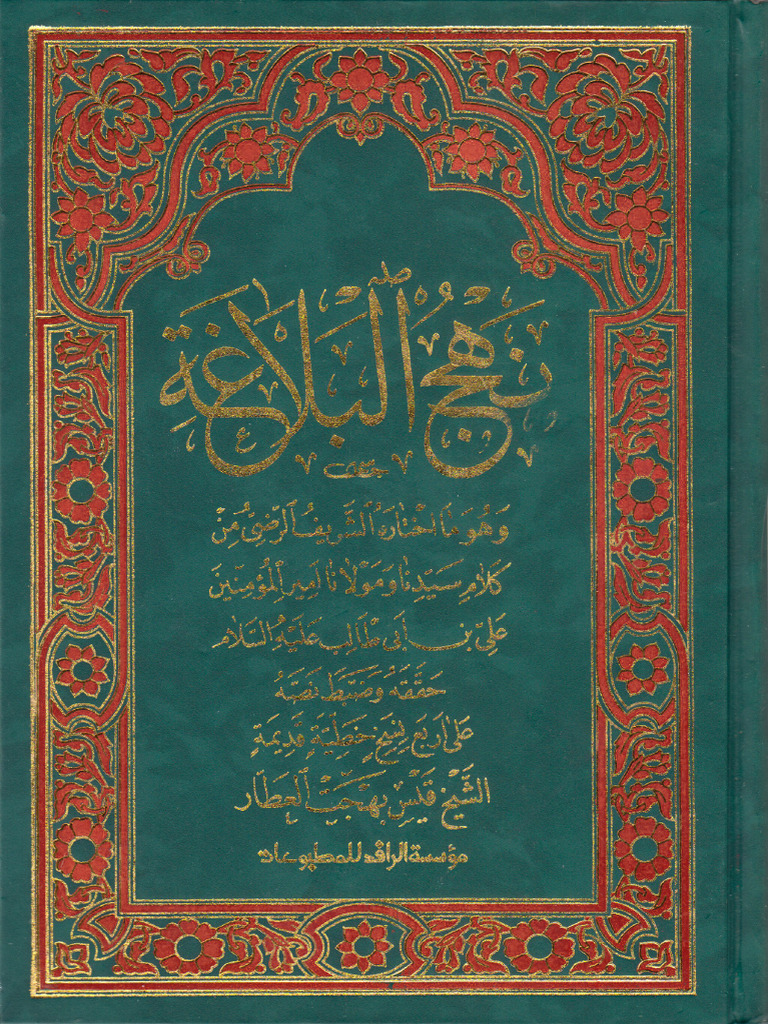 نَهْجُ ٱلْبَلَاغَةِ
وَهُوَ مَا اخْتَارَهُ ٱلشَّرِيفُ ٱلرَّضِيُّ مِنْ
كَلَامِ سَيِّدِنَا وَمَوْلَانَا أَمِيرِ ٱلْمُؤْمِنِينَ
عَلِيِّ بْنِ أَبِي طَالِبٍ عَلَيْهِ السَّلَام
حَقَّقَهُ وَضَبَطَ نَصَّهُ
عَلَى أَرْبَعِ نُسَخٍ خَطِّيَّةٍ قَدِيمَةٍ
الشَّيْخ قَيْس بَهْجَتْ ٱلْعَطَّار
مؤسسة الرافد للمطبوعات